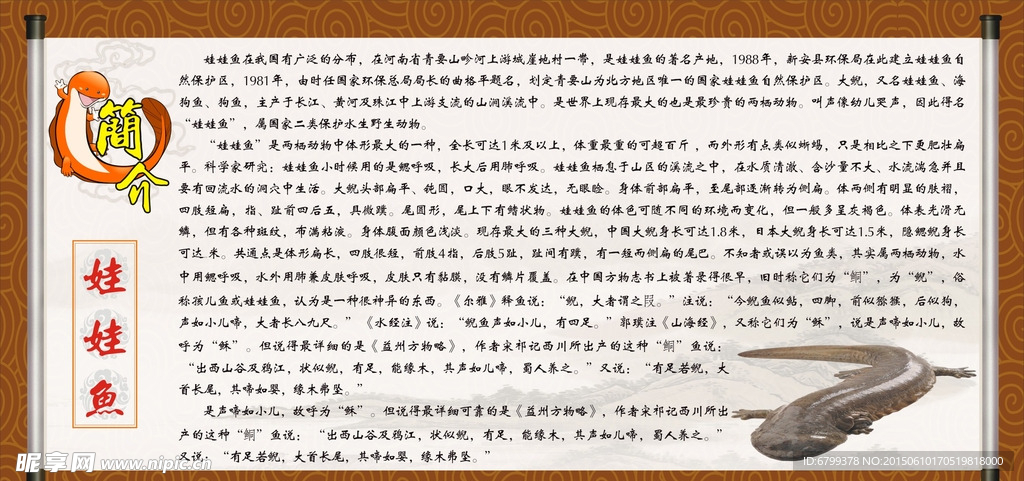 簡介
娃娃魚
娃娃鱼在我国有广泛的分布，在河南省青要山吟河上游城崖地村一带，是娃娃鱼的著名产地，1988年，新安县环保局在此建立娃娃鱼自
然保护区，1981年，由时任国家环保总局局长的曲格平题名，划定青要山为北方地区唯一的国家娃娃鱼自然保护区。大鲵，又名娃娃鱼、海
狗鱼、狗鱼，主产于长江、黄河及珠江中上游支流的山涧溪流中。是世界上现存最大的也是最珍贵的两栖动物。叫声像幼儿哭声，因此得名
“娃娃鱼”，属国家二类保护水生野生动物。
“娃娃鱼”是两栖动物中体形最大的一种，全长可达1米及以上，体重最重的可超百斤，而外形有点类似蜥蜴，只是相比之下更肥壮扁
平。科学家研究：娃娃鱼小时候用的是鳃呼吸，长大后用肺呼吸。娃娃鱼栖息于山区的溪流之中，在水质清澈、含沙量不大、水流湍急并且
要有回流水的洞穴中生活。大鲵头部扁平、钝圆，口大，眼不发达，无眼睑。身体前部扁平，至尾部逐渐转为侧扁。体两侧有明显的肤褶，
四肢短扁，指、趾前四后五，具微蹼。尾圆形，尾上下有鳍状物。娃娃鱼的体色可随不同的环境而变化，但一般多呈灰褐色。体表光滑无
鳞，但有各种斑纹，布满粘液。身体腹面颜色浅淡。现存最大的三种大鲵，中国大鲵身长可达1.8米，日本大鲵身长可达1.5米，隐鳃鲵身长
可达 米。共通点是体形扁长，四肢很短，前肢4指，后肢5趾，趾间有蹼，有一短而侧扁的尾巴。不知者或误以为鱼类，其实属两栖动物，水
中用鳃呼吸，水外用肺兼皮肤呼吸，皮肤只有黏膜，没有鳞片覆盖。在中国方物志书上被著录得很早，旧时称它们为“䱱”，为“鲵”，俗
称孩儿鱼或娃娃鱼，认为是一种很神异的东西。《尔雅》释鱼说：“鲵，大者谓之。”注说：“今鲵鱼似鲇，四脚，前似猕猴，后似狗，
声如小儿啼，大者长八九尺。”《水经注》说：“鲵鱼声如小儿，有四足。”郭璞注《山海经》，又称它们为“鲧”，说是声啼如小儿，故
呼为“鲧”。但说得最详细的是《益州方物略》，作者宋祁记西川所出产的这种“䱱”鱼说：
“出西山谷及鸦江，状似鲵，有足，能缘木，其声如儿啼，蜀人养之。”又说：“有足若鲵，大
首长尾，其啼如婴，缘木弗坠。”
是声啼如小儿，故呼为“鲧”。但说得最详细可靠的是《益州方物略》，作者宋祁记西川所出
产的这种“䱱”鱼说：“出西山谷及鸦江，状似鲵，有足，能缘木，其声如儿啼，蜀人养之。”
又说：“有足若鲵，大首长尾，其啼如婴，缘木弗坠。”
昵享网 www.nipic.cn
ID:6799378 NO:20150610170519818000